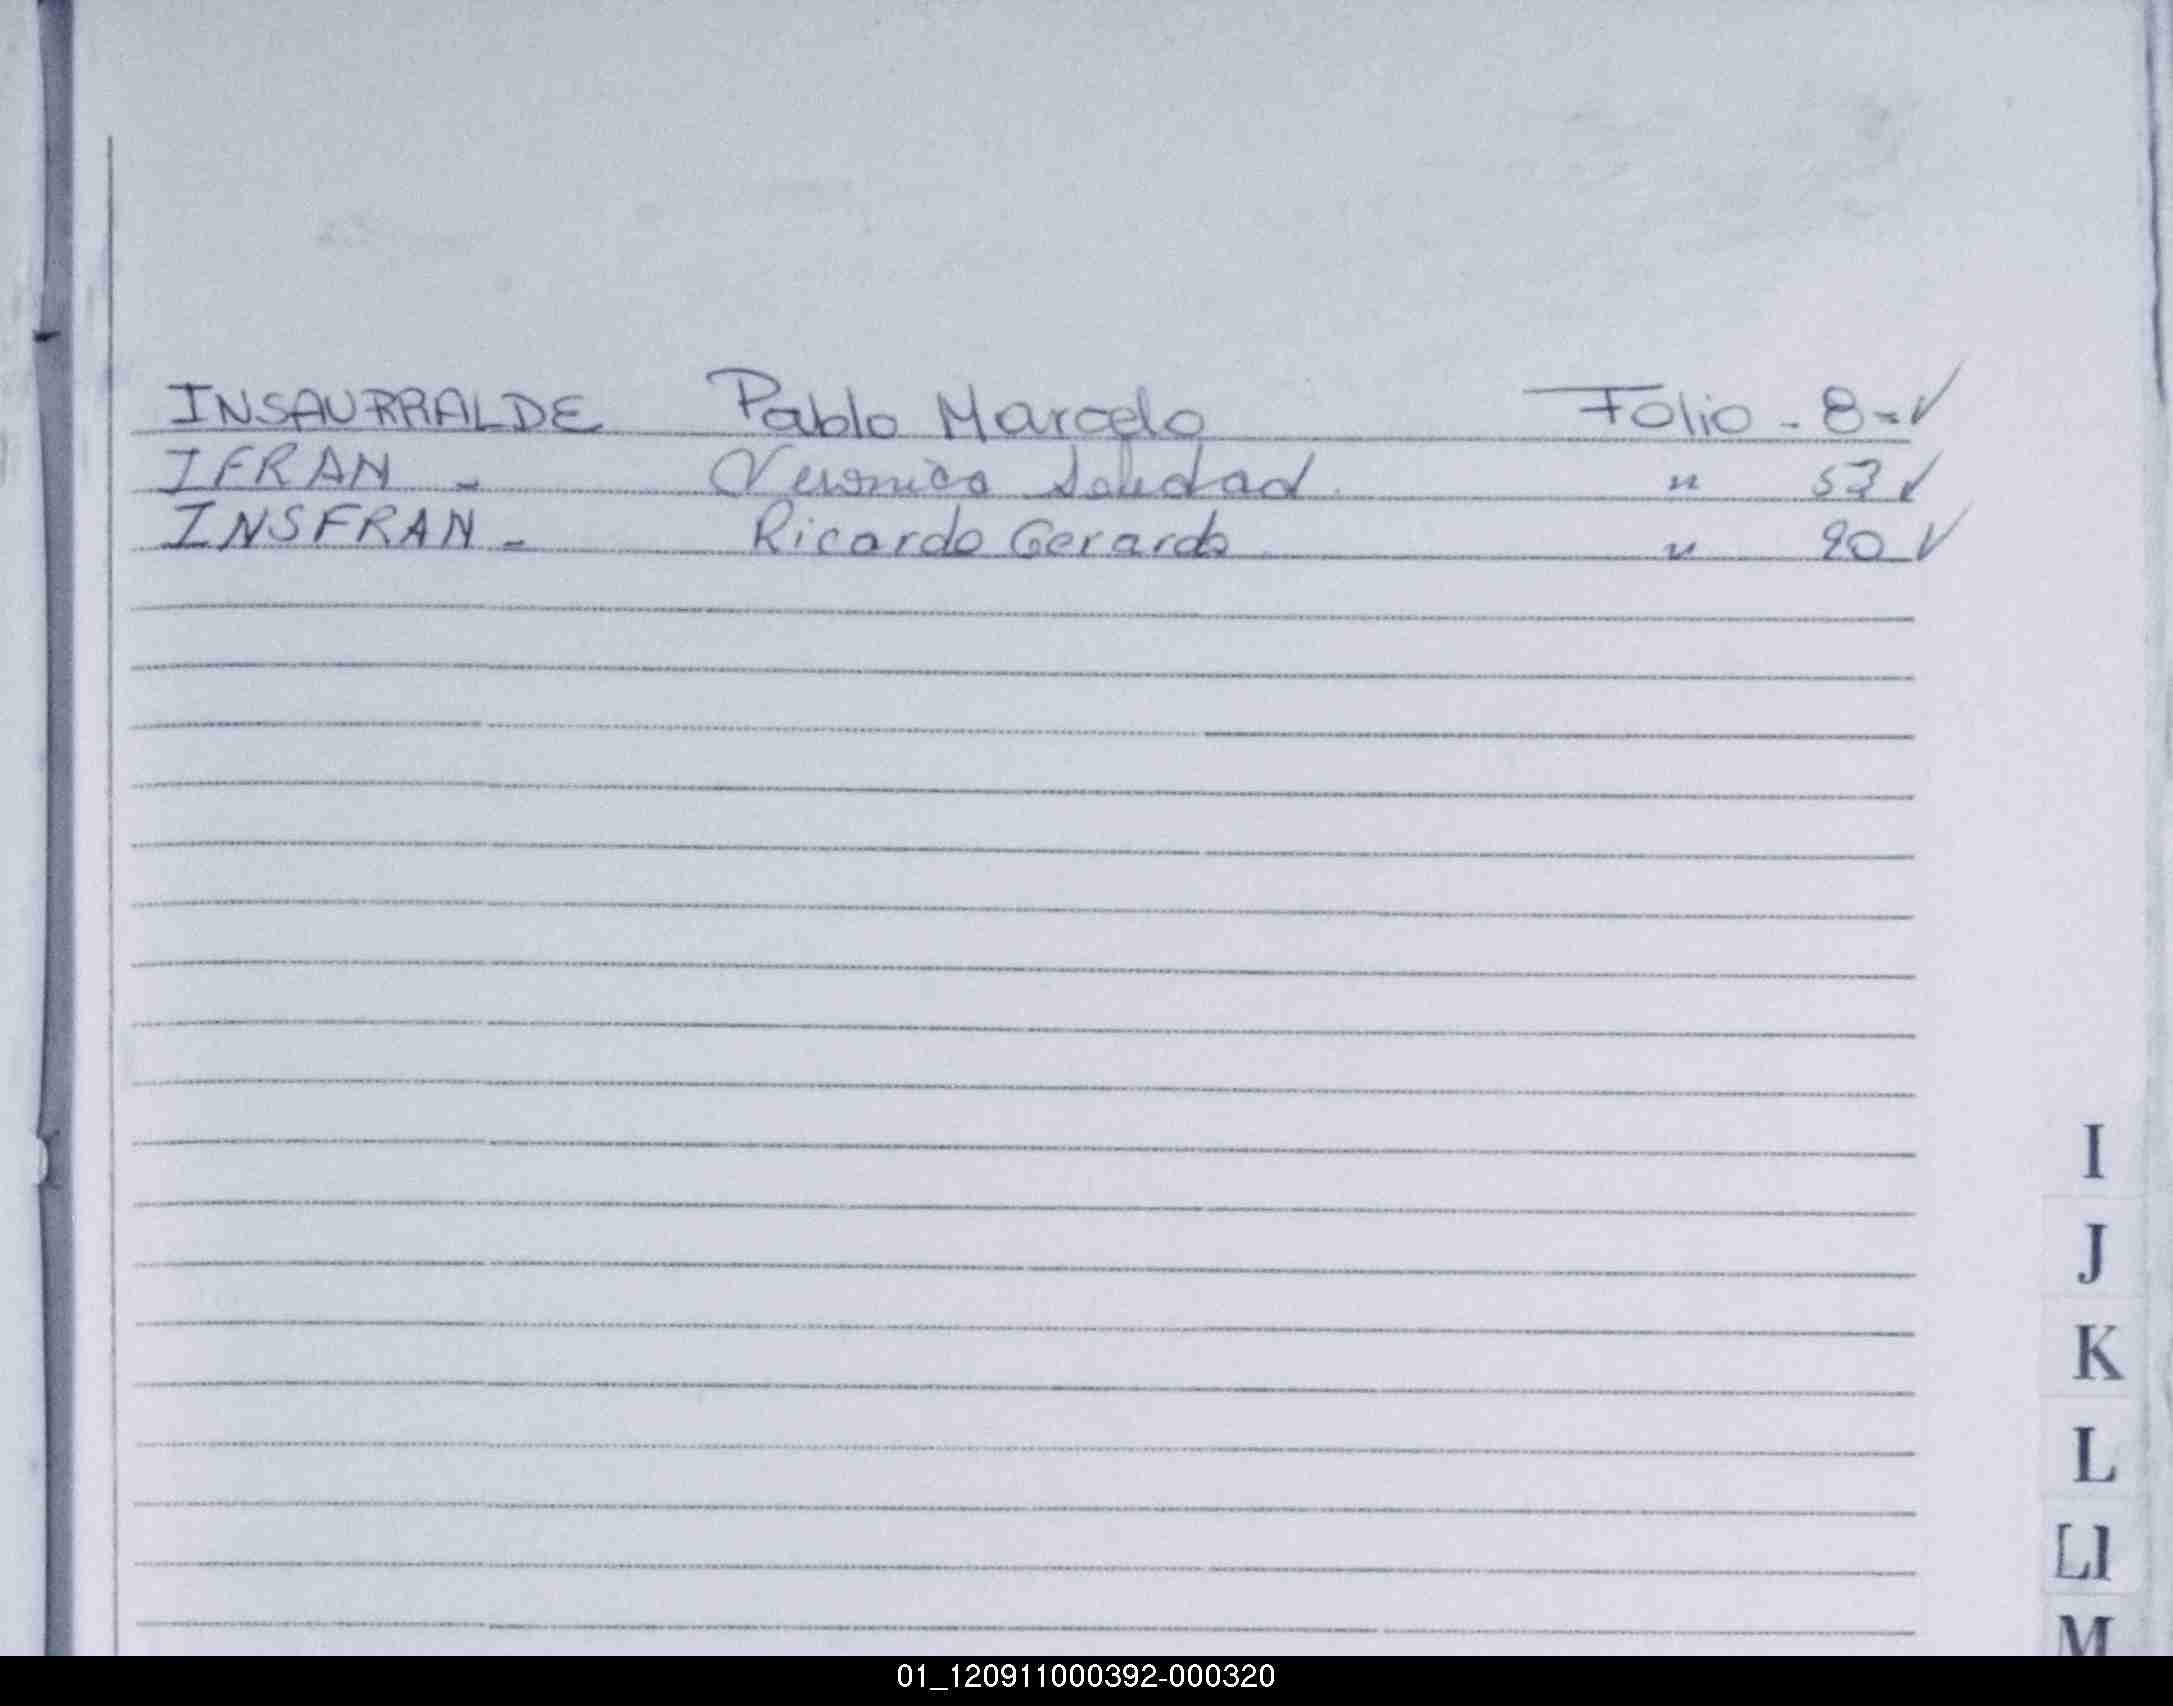 INSAURRALDE Pablo Marcelo Folio - 8 - ✓
IFRAN - Veronica Soledad. " 53 ✓
INSFRAN - Ricardo Gerardo. " 90 ✓
I
J
K
L
Ll
M
01_120911000392-000320